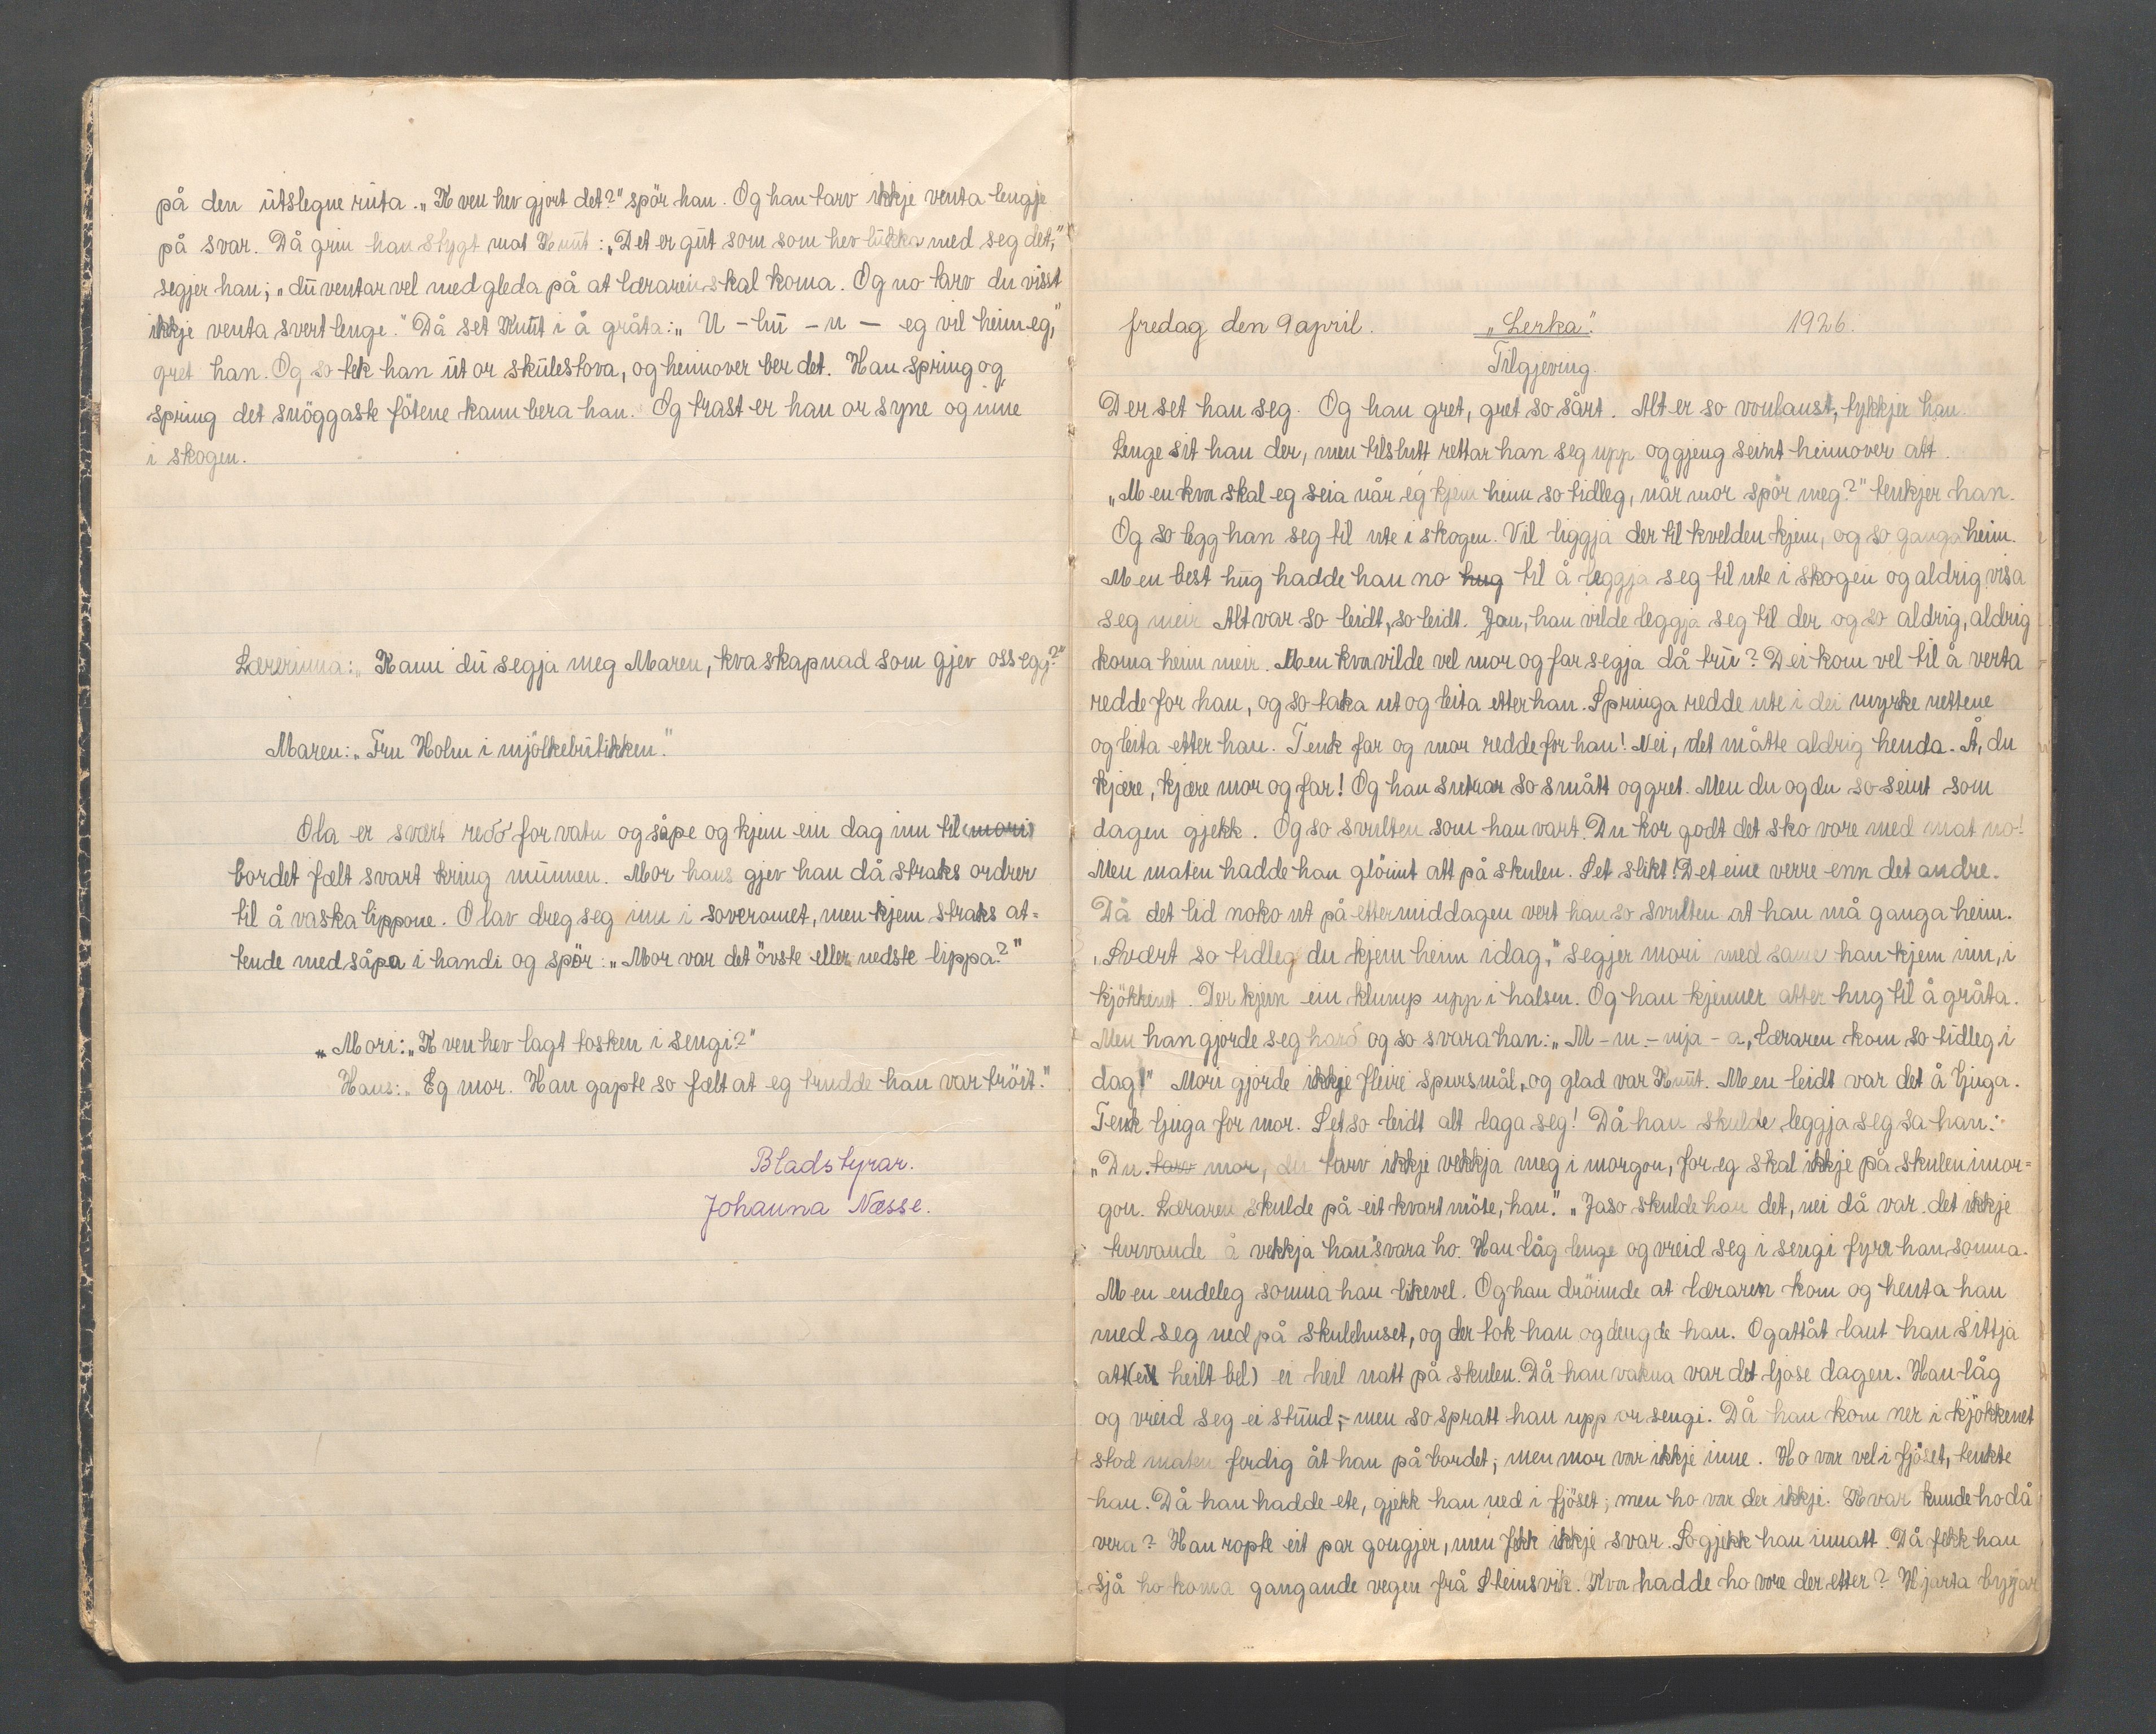 på den útslegne rúta. „Kven hev gjort det?" spör han. Og han tarv ikkje venta lengje
på svar. Då grin han stygt mot Knút: „Det er gút som som hev lukka med seg det,"
segjer han; „dú ventar vel med gleda på at læraren skal koma. Og no tarv du visst
ikkje venta svert lenge." Då set Knút i å gråta: „U - hú - u — eg vil heim eg,"
gret han. Og so tek han út or skúlestova, og heimover ber det. Han spring og
spring det snöggaste fötene kann bera han. Og brast er han or syne og inne
i skogen.
Lærerinna: „Kann dú segja meg Maren, kva skapnad som gjev oss egg?"
Maren: „Fru Holm i mjölkebútikken."
Ola er svært redd for vatn og såpe og kjem ein dag inn til (mori)
bordet fælt svart kring múnnen. Mor hans gjev han då straks ordrer
til å vaska lippone. Olav dreg seg inn i soveromet, men kjem straks at-
tende med såpa i handi og spör: „Mor var det övste eller nedste lippa?"
„Mori: „Kven hev lagt tosken i sengi?"
Hans: „Eg mor. Han gapte so fælt at eg trudde han var tröit."
Bladstyrar.
Johanna Næsse.
fredag den 9 april. „Lerka". 1926.
Tilgjeving.
Der set han seg. Og han gret, gret so sårt. Alt er so vonlaust, tykkjer han.
Lenge sit han der, men tilslutt rettar han seg upp og gjeng seint heimover att.
„Men kva skal eg seia når eg kjem heim so tidleg, når mor spör meg?" tenkjer han.
Og so legg han seg til ute i skogen. Vil liggja der til kvelden kjem, og so ganga heim.
Men best húg hadde han no hug til å leggja seg til ute i skogen og aldrig visa
seg meir Alt var so leidt, so leidt. Jau, han vilde leggja seg til der og so aldrig, aldrig
koma heim meir. Men kva vilde vel mor og far segja då trú? Dei kom vel til å verta
redde for han, og so taka ut og leita etter han. Springa redde ute i dei myrke nettene
og leita etter han. Tenk far og mor redde for han! Nei, det måtte aldrig henda. Å, du
kjære, kjære mor og far! Og han sutrar so smått og gret. Men du og du so seint som
dagen gjekk. Og so svulten som han vart. Du kor godt det sko vore med mat no!
Men maten hadde han glöimt att på skulen. Set slikt! Det eine verre enn det andre.
Då det lid noko ut på ettermiddagen vert han so svulten at han må ganga heim.
„Svært so tidleg du kjem heim idag," segjer mori med same han kjem inn, i
kjökkenet. Der kjem ein klump upp i halsen. Og han kjenner atter hug til å gråta.
Men han gjorde seg hard og so svara han: „M - m - mja - a, læraren kom so tidleg i
dag!" Mori gjorde ikkje fleire spursmål, og glad var Knút. Men leidt var det å ljuga.
Tenk ljuga for mor. Set so leidt alt laga seg! Då han skulde leggja seg sa han:
„Du tarv mor, du tarv ikkje vekkja meg i morgon, for eg skal ikkje på skulen imor-
gon. Læraren skulde på eit kvart möte, han." „Jaso skulde han det, nei då var det ikkje
turvande å vekkja han" svara ho. Han låg lenge og vreid seg i sengi fyrr han somna.
Men endeleg somna han likevel. Og han dröimde at læraren kom og henta han
med seg ned på skulehuset, og der tok han og dengde han. Og attåt laut han sittja
att (eit heilt bel) ei heil natt på skulen. Då han vakna var det ljose dagen. Han låg
og vreid seg ei stúnd; men so spratt han upp or sengi. Då han kom ner i kjökkenet
stod maten ferdig åt han på bordet; men mor var ikkje inne. Ho var vel i fjöset, tenkte
han. Då han hadde ete, gjekk han ned i fjöset; men ho var der ikkje. Kvar kunde ho då
vera? Han ropte eit par gongjer, men fekk ikkje svar. So gjekk han innatt. Då fekk han
sjå ho koma gangande vegen frå Steinsvik. Kva hadde ho vore der etter? Hjarta byrjar